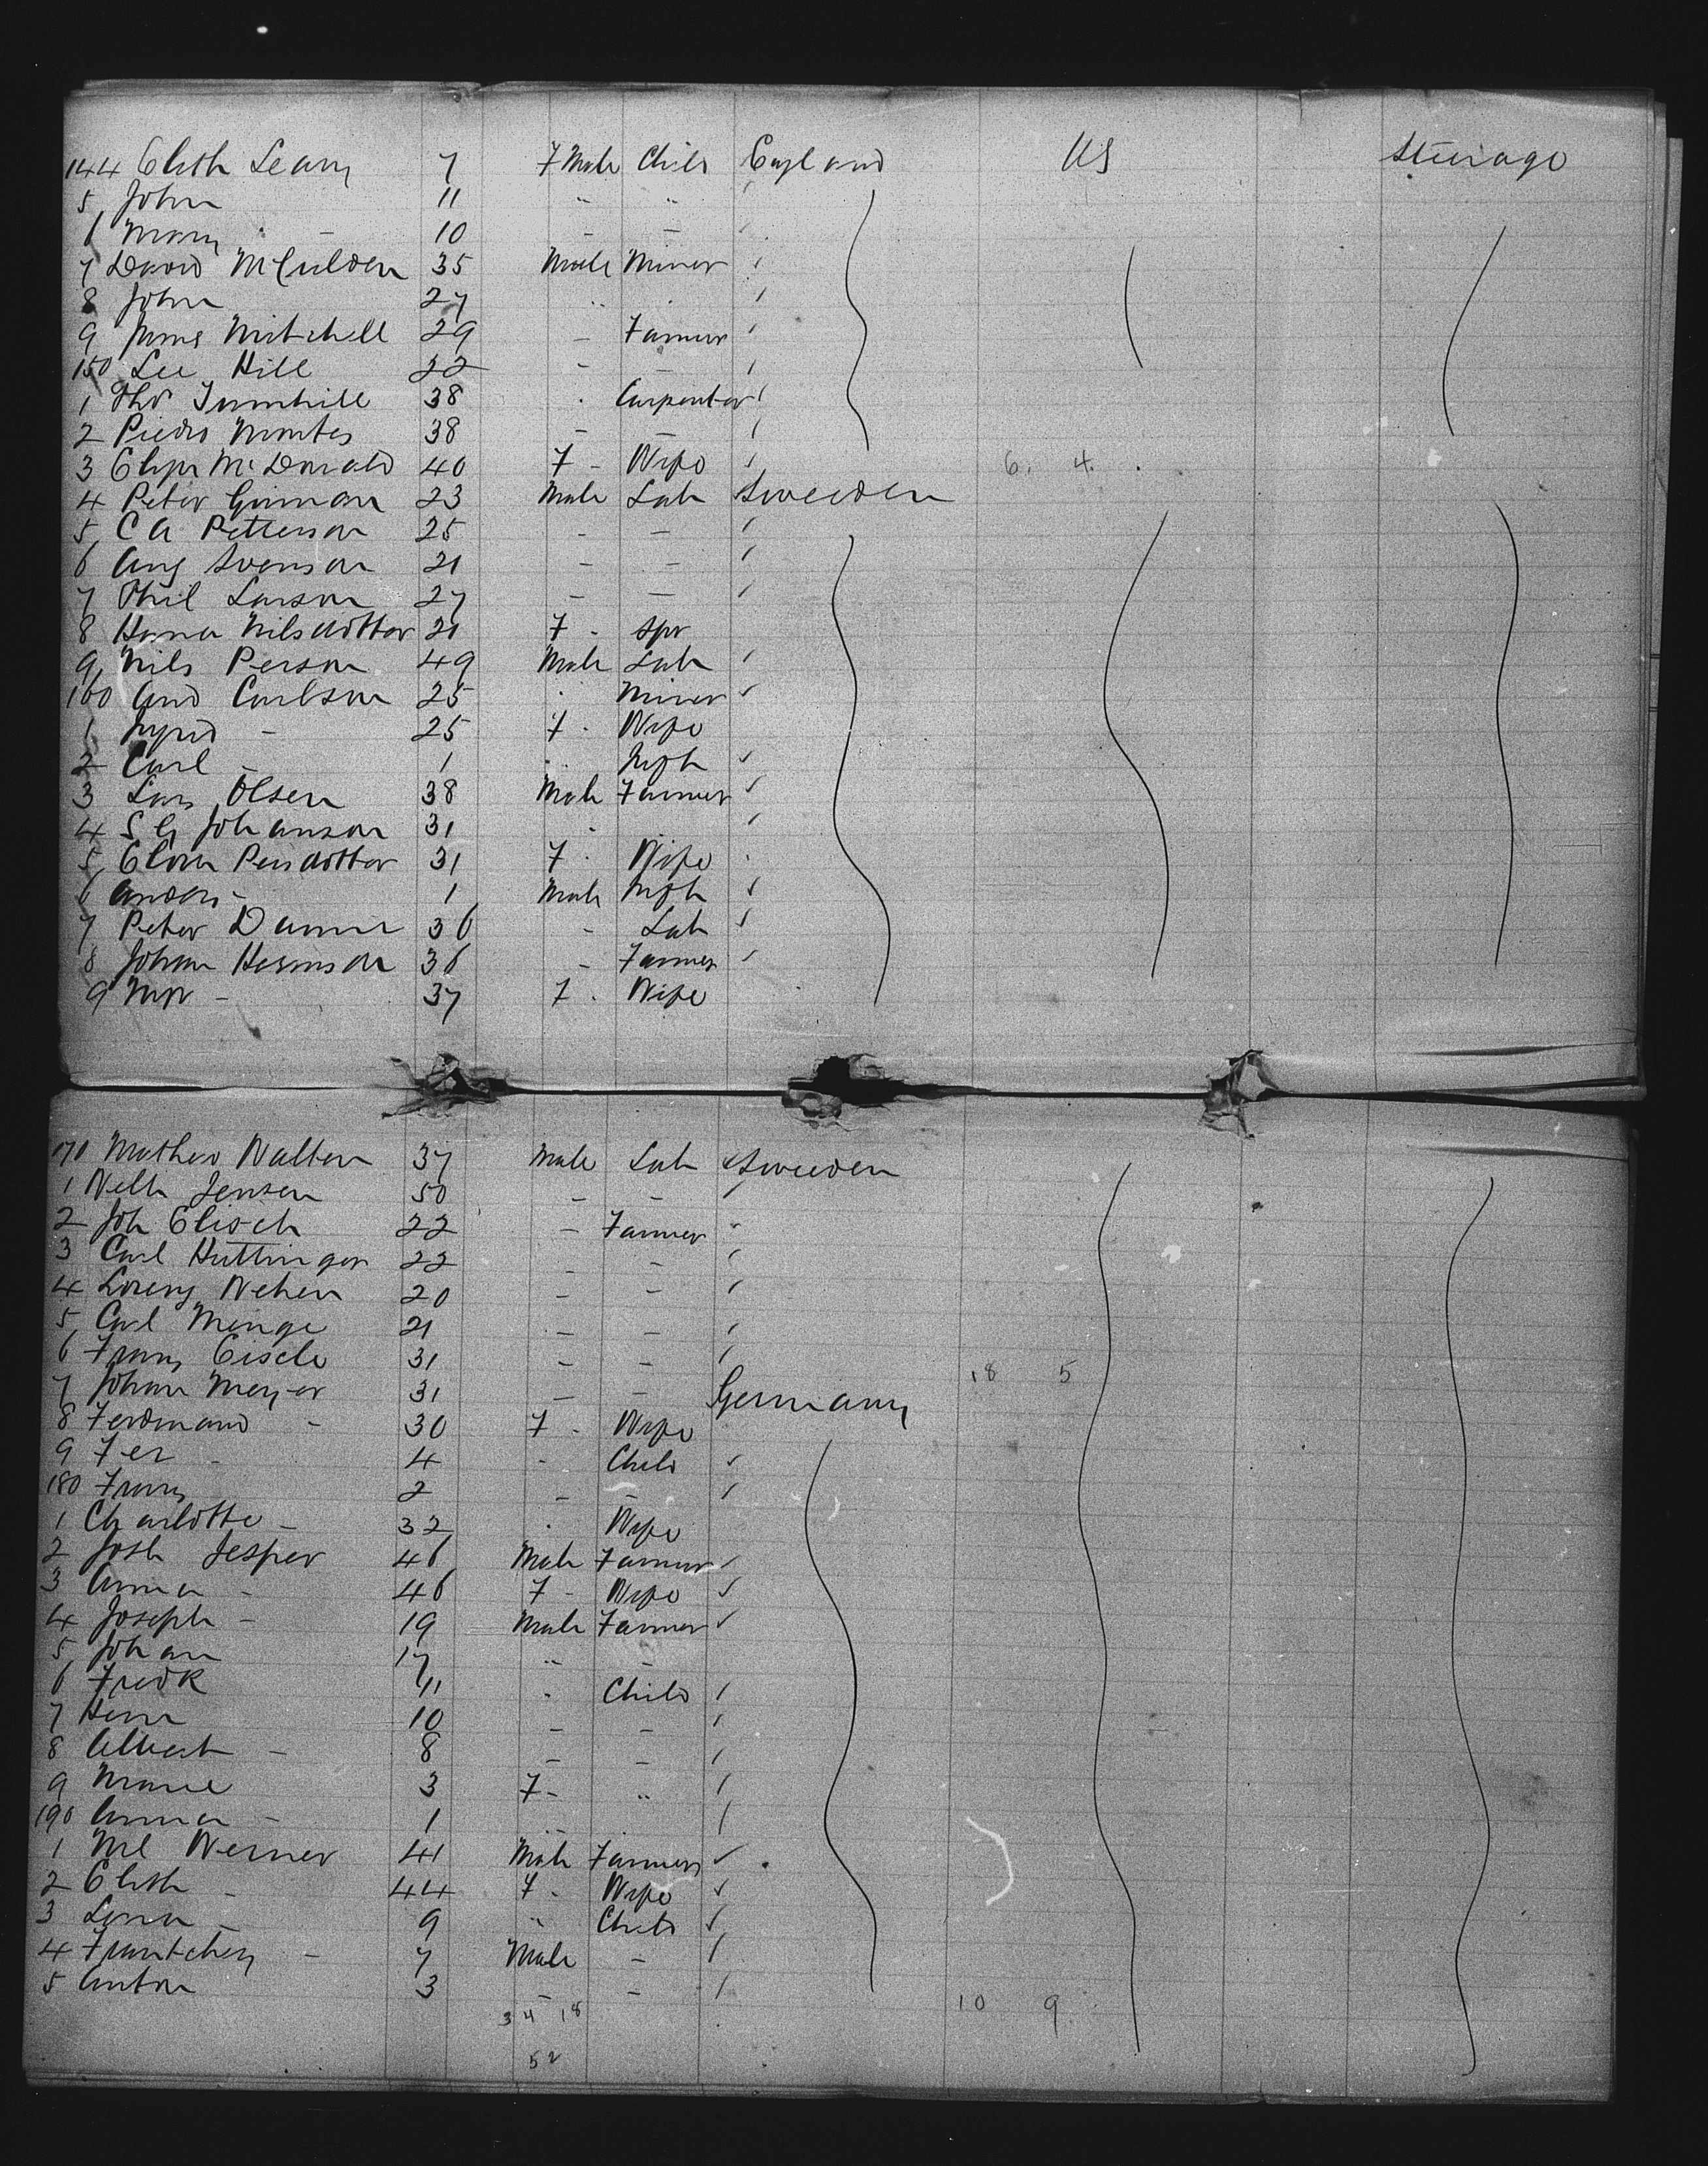 144 Elisth Leary 7 F Male Child England US Steerage
5 John 11 " "
6 Mary - 10 - -
7 David McCulden 35 Male Miner
8 John 27 "
9 James Mitchell 29 - Farmer
150 Lee Hill 22 - -
1 Tho Turnhill 38 Carpenter
2 Piedro Montes 38 - -
3 McDonald 40 F - Wife 6. 4.
4 Peter 23 Male Lab Sweeden
5 C A Petterson 25 - -
6 Aug Svenson 21 - -
7 Phil Larson 27 - -
8 Hanna Nilsdotter 21 F - Spr
9 Nils Person 49 Male Lab
160 And Carlson 25 Miner
1 - 25 F - Wife
2 Carl - 1 Infh
3 Lars Olsen 38 Male Farmer
4 S G Johanson 31 -
5 Persdotter 31 F - Wife
6 Anders - 1 Male Infh
7 Peter 36 - Lab
8 Johan 36 - Farmer
9 - 37 F - Wife
170 Mathew Walten 37 Male Lab Sweeden
1 Jensen 50 - -
2 Joh Elisch 22 - Farmer
3 Carl Huttinger 22 - -
4 Lorenz Neher 20 - -
5 Carl Menge 21 - -
6 Franz Eisele 31 - -
7 Johan Meyer 31 - - Germany 18 5
8 Ferdinand - 30 F - Wife
9 Fer - 4 - Child
180 Franz 2 - -
1 Charlotte - 32 Wife
2 Josh Jesper 46 Male Farmer
3 Anna - 46 F - Wife
4 Joseph - 19 Male Farmer
5 Johan 17 " -
6 Fredk 11 Child
7 10 - -
8 Albert - 8 - -
9 Marie 3 F - "
190 Anna - 1 "
1 Ml Werner 41 Male Farmer
2 Elisth - 44 F - Wife
3 Lena - 9 " Child
4 - 7 Male -
5 Anton 3 - - 10 9
34 18
52